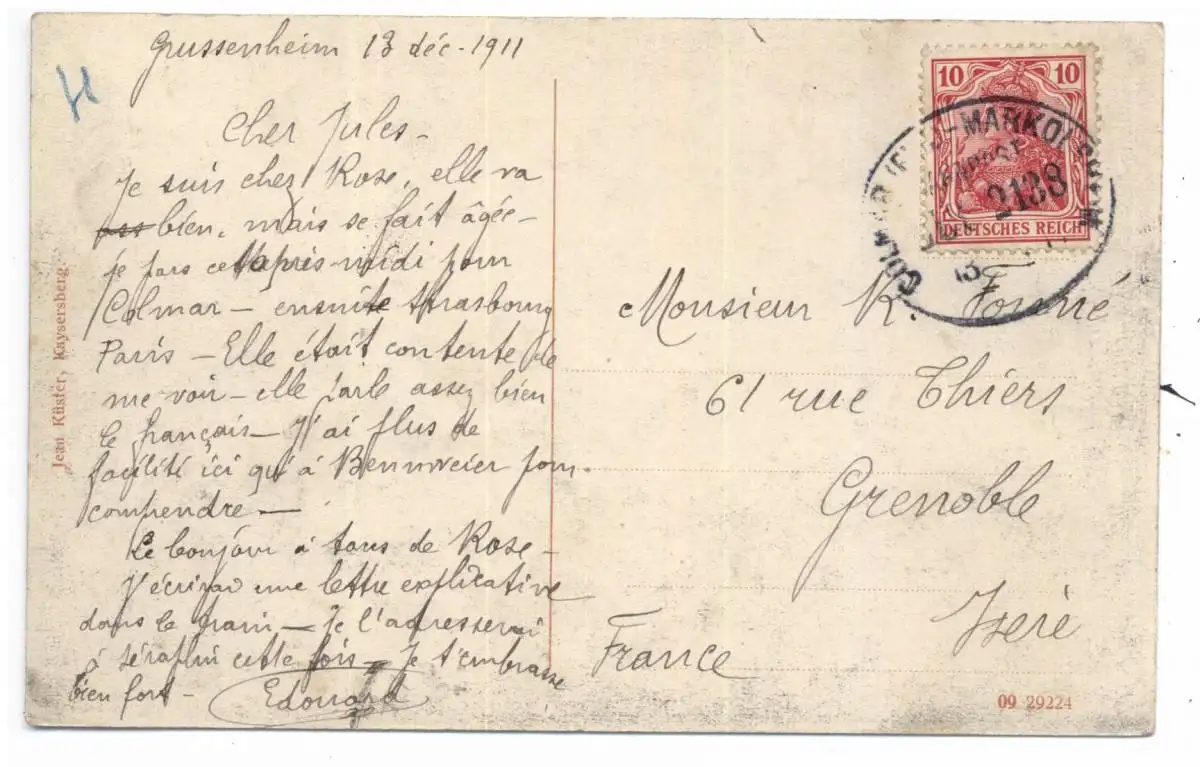 Grussenheim 13 déc - 1911
Cher Jules -
Je suis chez Rose, elle va
bien, mais se fait âgée -
Je pars cet après-midi pour
Colmar - ensuite Strasbourg
Paris - Elle était contente de
me voir - elle parle assez bien
le français - J'ai plus de
facilité ici qu'à Bennweier pour
comprendre -
Le bonjour à tous de Rose -
J'écrirai une lettre explicative
dans le train - Je l'adresserai
à Séraphin cette fois - Je t'embrasse
bien fort -
Edouard
Jean Küster, Kaysersberg
10 10
DEUTSCHES REICH
COLMAR
MARKOLSHEIM
2138
13
Monsieur R.
61 rue Thiers
Grenoble
Isère
France
09 29224